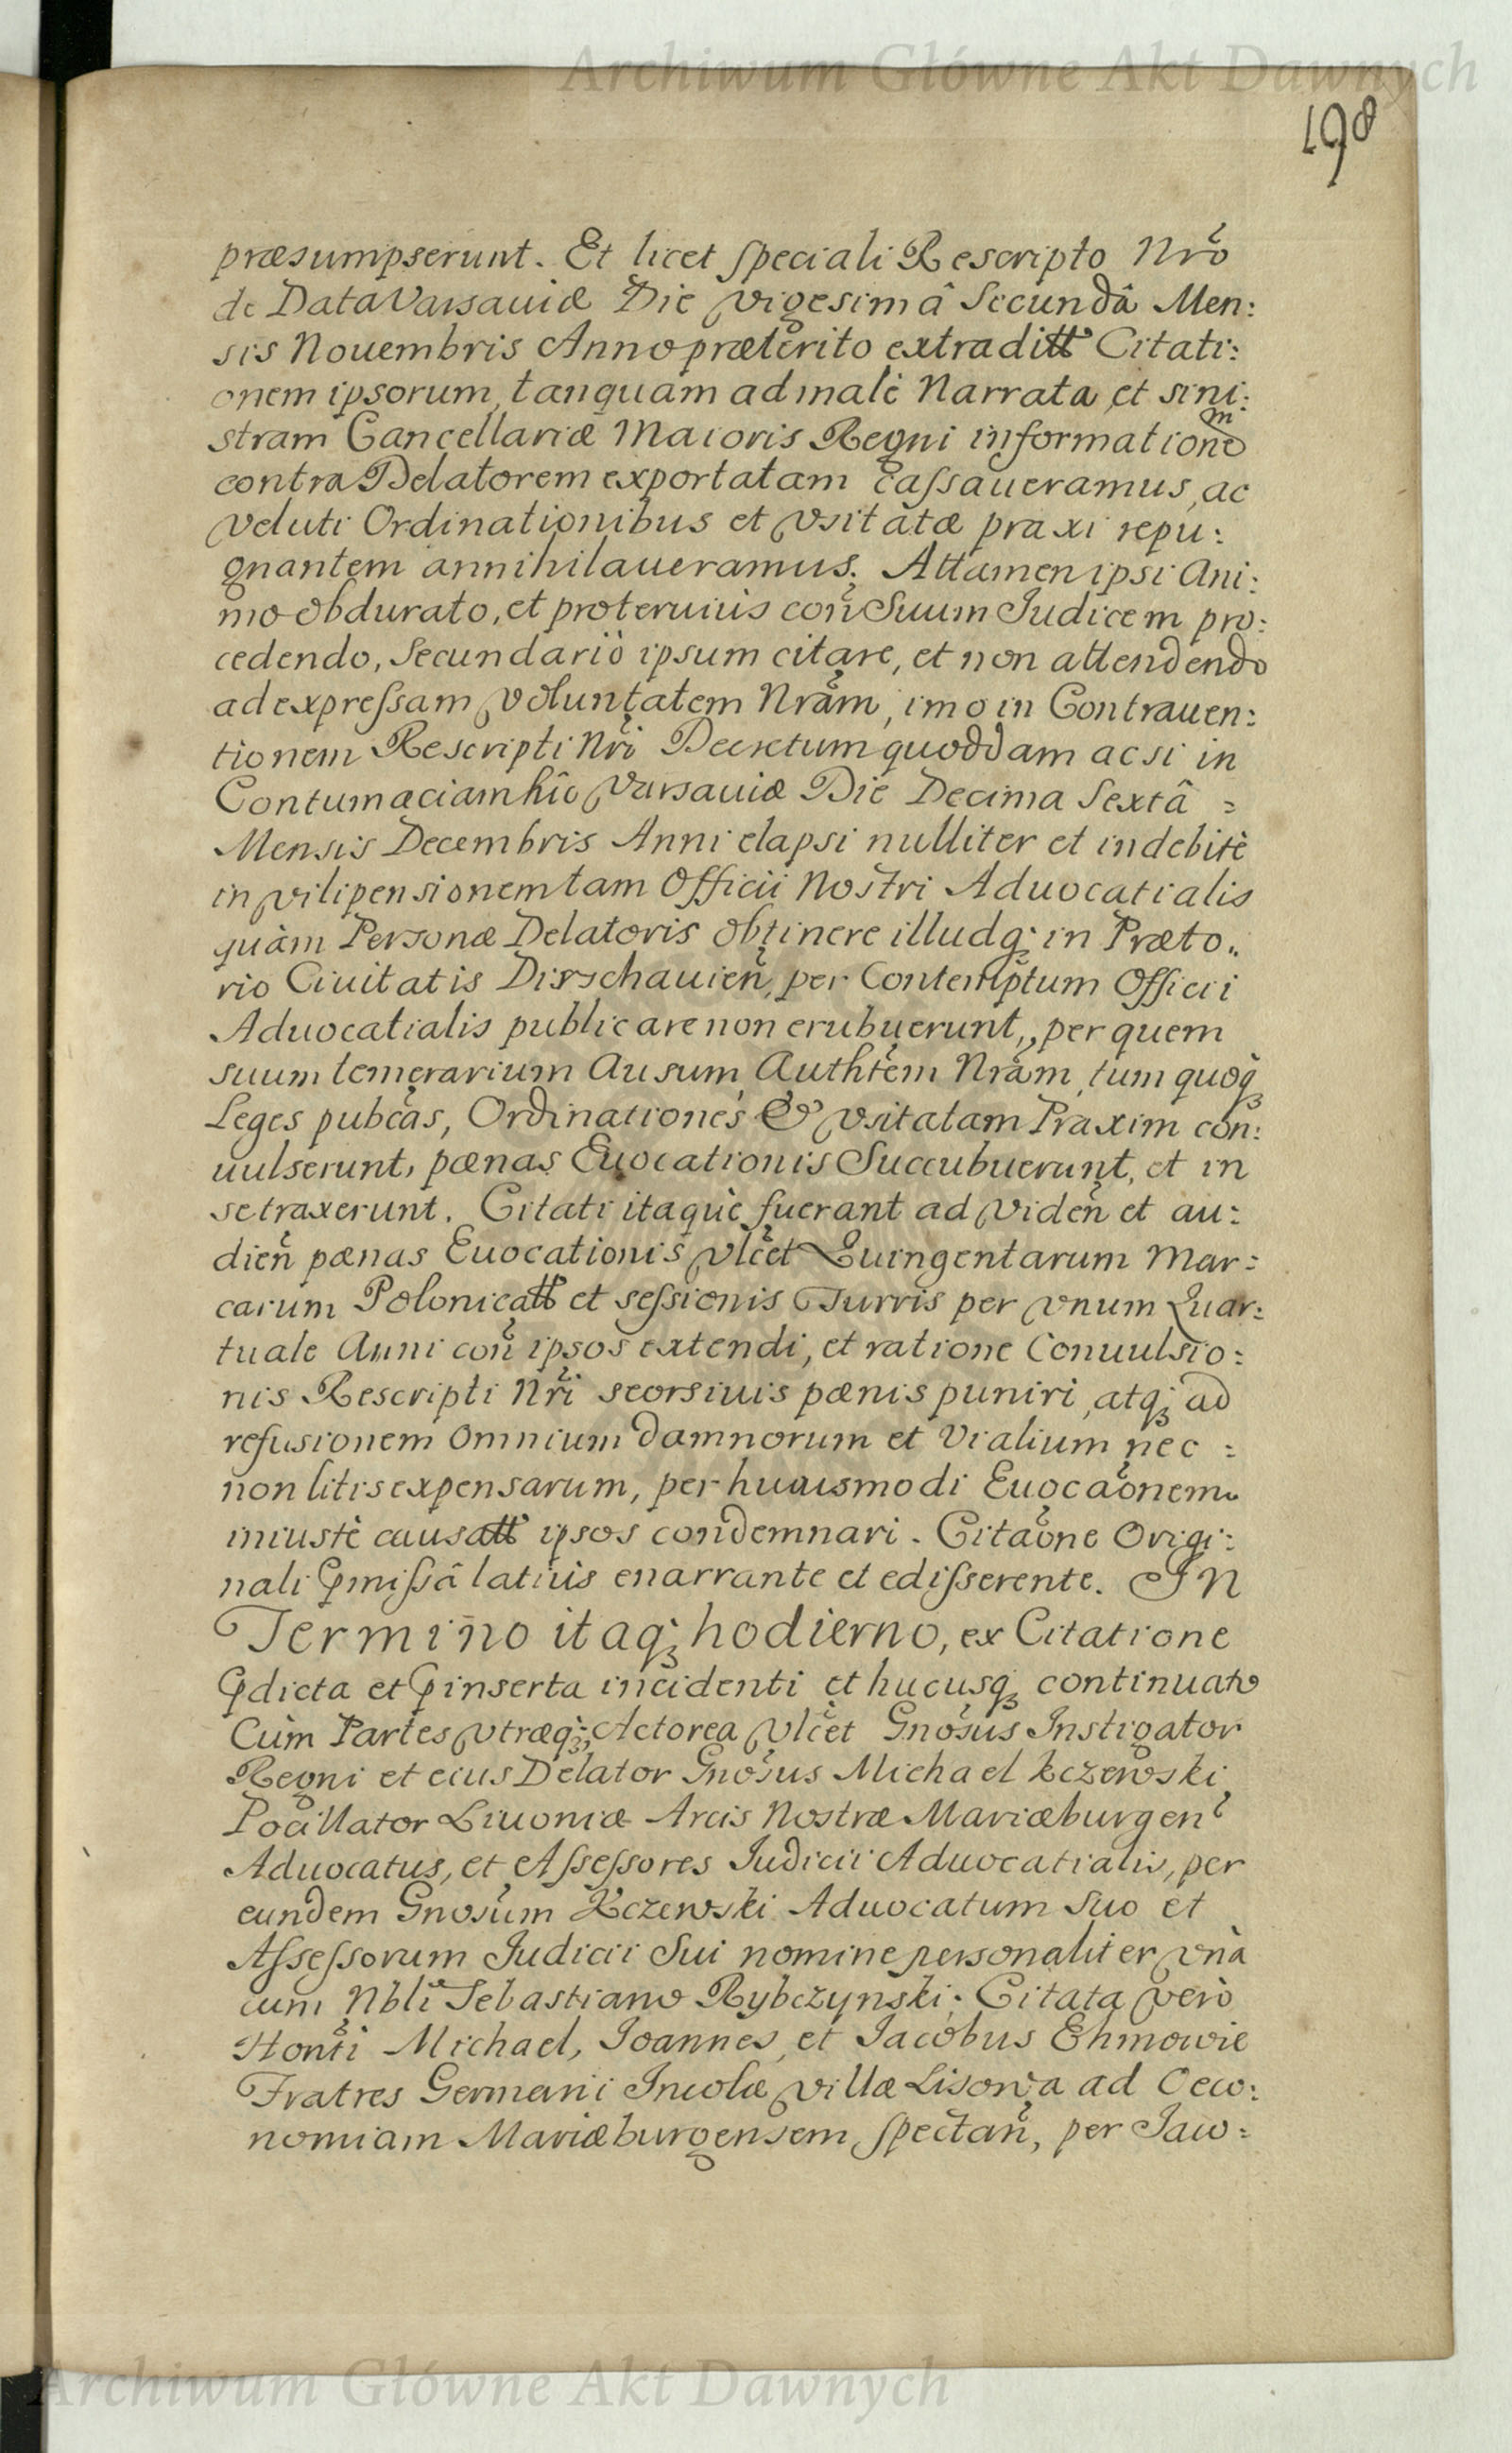 Archiwum Główne Akt Dawnych
198
præsumpserunt. Et licet speciali Rescripto Nrõ
de Data Varsauiæ Die vigesimâ Secundâ Men:
sis Nouembris Anno præterito extraditt Citati:
onem ipsorum, tanquam ad malè Narrata et sini:
stram Cancellariæ Maioris Regni informationem
contra Delatorem exportatam cassaueramus, ac
veluti Ordinationibus et vsitatæ praxi repu:
gnantem annihilaueramus. Attamen ipsi Ani:
mo obdurato, et proteruiùs coñ Suum Iudicem pro:
cedendo, Secundariò ipsum citare, et non attendendo
ad expressam voluntatem Nram̃, imo in Contrauen:
tionem Rescripti Nrĩ Decretum quoddam ac si in
Contumaciam hîc Varsauiæ Die Decima Sextâ =
Mensis Decembris Anni elapsi nulliter et indebitè
in vilipensionem tam Officii Nostri Aduocatialis
quàm Personæ Delatoris obtinere illudq; in Præto„
rio Ciuitatis Dirschauieñ, per Contemptum Officii
Aduocatialis publicare non erubuerunt, per quem
suum temerarium Ausum Authtem̃ Nram̃, tum quoq;
Leges pubcãs, Ordinationes & vsitatam Praxim con:
uulserunt, pœnas Euocationis Succubuerunt, et in
se traxerunt. Citati itaquè fuerant ad videñ et au:
dieñ pœnas Euocationis vlcẽt Quingentarum Mar:
carum Polonicatt et sessionis Turris per vnum Quar:
tuale Anni coñ ipsos extendi, et ratione Conuulsio:
nis Rescripti Nrĩ seorsiuis pœnis puniri, atq; ad
refusionem omnium damnorum et Vialium nec =
non litis expensarum, per huiusmodi Euocãonem
iniustè causatt ipsos condemnari. Citãone Origi:
nali p̱missâ latiùs enarrante et edisserente. IN
Termino itaq; hodierno, ex Citatione
p̱dicta et p̱inserta incidenti et hucusq; continuato
Cùm Partes vtræq; Actorea vlcẽt Gnosũs Instigator
Regni et eius Delator Gnosũs Michael Kczewski
Pocillator Liuoniæ Arcis Nostræ Mariæburgeñ
Aduocatus, et Assessores Iudicii Aduocatialis, per
eundem Gnosũm Kczewski Aduocatum Suo et
Assessorum Iudicii Sui nomine personaliter vnà
cum Nblĩ Sebastiano Rybczynski; Citata verò
Hontĩ Michael, Ioannes, et Iacobus Ehmowie
Fratres Germani Incolæ villæ Lisowa ad Oeco:
nomiam Mariæburgensem spectañ, per Iaco=
Archiwum Główne Akt Dawnych